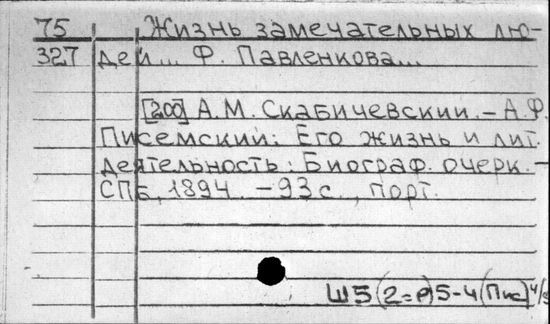 75 Жизнь замечательных лю-
327 дей... Ф. Павленкова...
[200] А.М. Скабичевский. – А.Ф.
Писемский: Его жизнь и лит.
деятельность: Биограф. очерк. –
СПб, 1894. – 93 с., порт.
Ш5(2=Р)5-4(Пис)